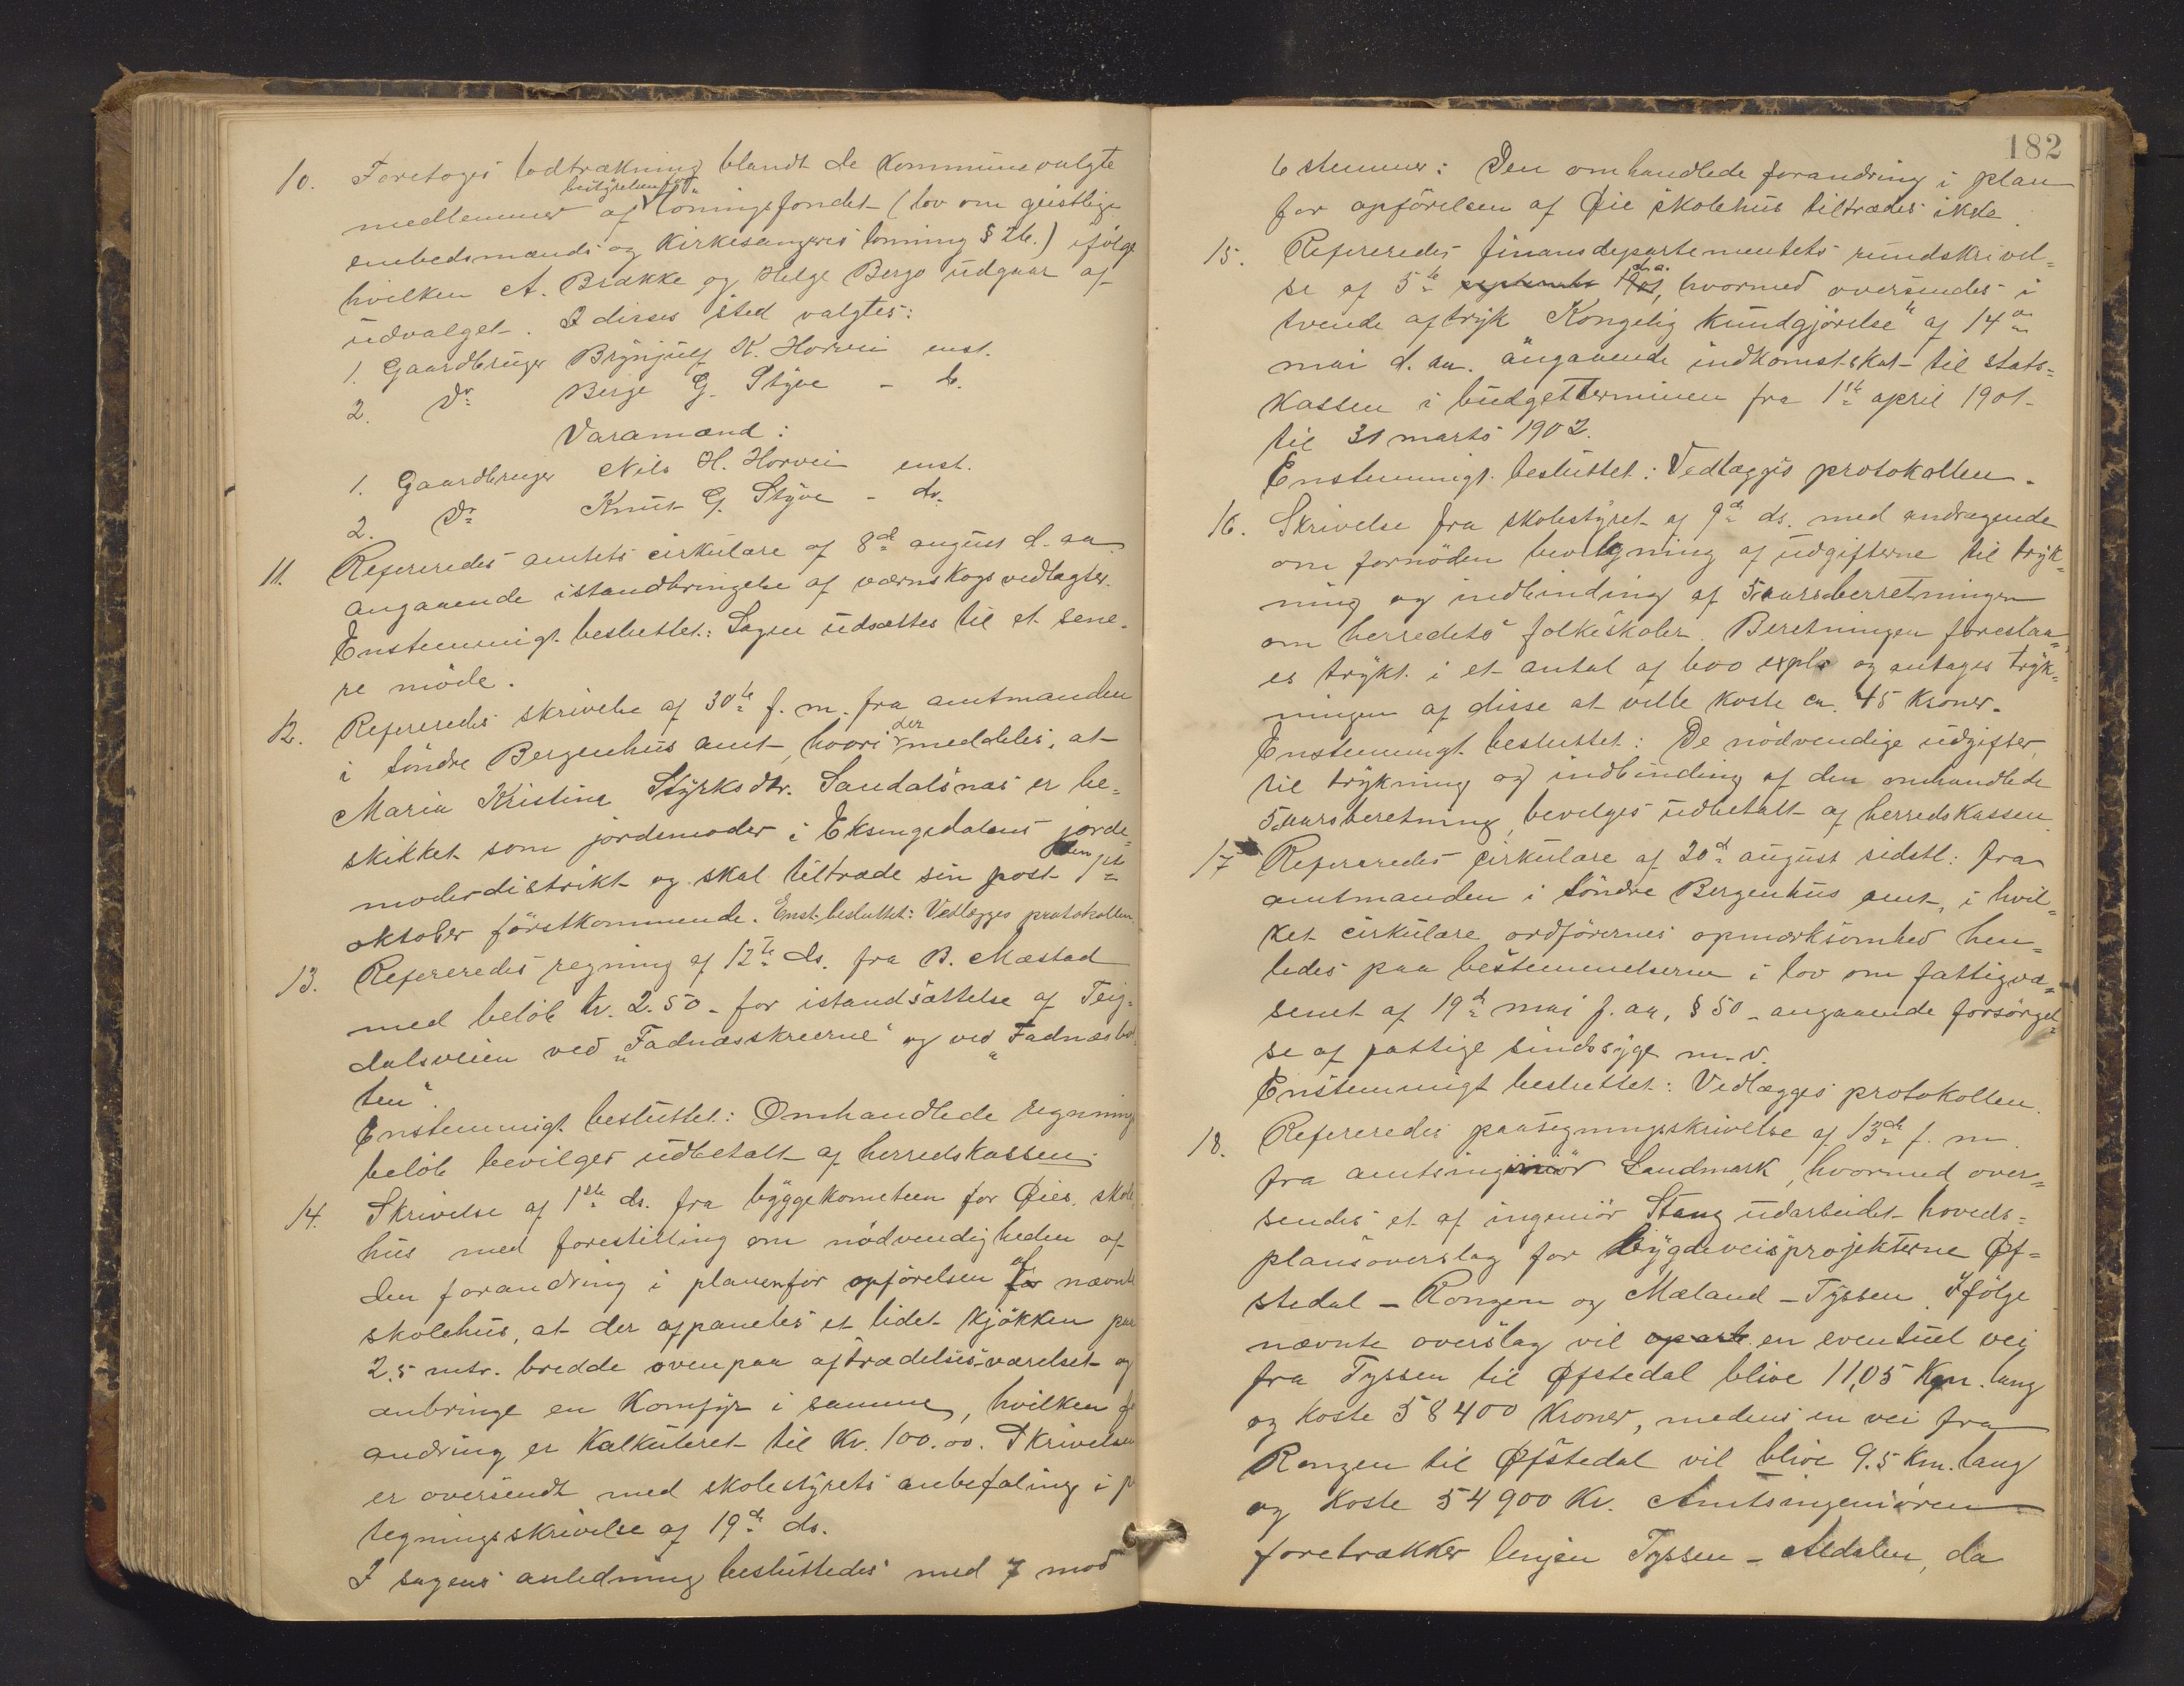 10. Foretoges lodtrækning blandt de kommunevalgte
medlemmer af bestyrelsen for lønningsfondet (lov om geistlige
embedsmænds og kirkesangeres lønning § 26.) ifølge
hvilken A. Brakke og Helge Bergo udgaar af
udvalget. I disses sted valgtes:
1. Gaardbruger Brynjulf K. Horvei enst.
2. Do Berge G. Styve - do.
Varamænd:
1. Gaardbruger Nils H. Horvei enst.
2. Do Knut G. Styve - do.
11. Refereredes amtets cirkulære af 8de august d. aa.
angaaende istandbringelse af værnskogsvedtægter.
Enstemmigt besluttet: Sagen udsættes til et sene-
re møde.
12. Refereredes skrivelse af 30te f. m. fra amtmanden
i søndre Bergenhus amt, hvori der meddeles, at
Maria Kristina Styrksdtr. Sandalsnæs er be-
skikket som jordemoder i Eksingedalens jorde-
moderdistrikt og skal tiltræde sin post den 1ste
oktober førstkommende. Enst. besluttet: Vedlægges protokollen
13. Refereredes regning af 12te ds. fra B. Mæstad
med beløb kr. 2.50 for istandsættelse af Teig-
dalsveien ved „Fadnæsskreerne“ og ved „Fadnæsbot
ten“.
Enstemmigt besluttet: Omhandlede regnings
beløb bevilges udbetalt af herredskassen.
14. Skrivelse af 1ste ds. fra byggekomiteen for Øies skole
hus med forestilling om nødvendigheden af
den forandring i planen for opførelsen af for nævnte
skolehus, at der afpaneles et lidet kjøkken paa
2,5 mtr. bredde ovenpaa aftrædelsesværelset og
anbringe en komfyr i samme, hvilken
andring er kalkuleret til Kr. 100.00. Skrivelsen
er oversendt med skolestyrets anbefaling i
tegningsskrivelse af 19de ds.
I sagens anledning besluttedes med 7 mod
182
6 stemmer: Den omhandlede forandring i plan
for opførelsen af Øie skolehus tiltrædes ikke.
15. Refereredes finansdepartementets rundskrivel-
se af 5te september 1901, d. a. hvormed oversendes i
tvende aftryk „Kongelig kundgjørelse“ af 14de
mai d. aa. angaaende indkomstskat til stats-
kassen i budgetterminen fra 1ste april 1901
til 31 marts 1902.
Enstemmigt besluttet: Vedlægges protokollen.
16. Skrivelse fra skolestyret af 9de ds. med andragende
om fornøden bevilgning af udgifterne til tryk-
ning og indbinding af 5aarsberretningen
om herredets folkeskoler. Beretningen foreslaa-
es trykt i et antal af 600 expl. og antages tryk-
ningen af disse at ville koste ca. 45 kroner.
Enstemmigt besluttet: De nødvendige udgifter
til trykning og indbinding af den omhandlede
5aarsberetning bevilges udbetalt af herredskassen.
17 Refereredes cirkulære af 20de august sidstl. fra
amtmanden i søndre Bergenhus amt, i hvil-
ket cirkulære ordførernes opmærksomhed hen-
ledes paa bestemmelserne i lov om fattigvæ-
senet af 19de mai f. aa, § 50 angaaende forsørgel-
se af fattige sindssyge m. v.
Enstemmigt besluttet: Vedlægges protokollen.
18. Refereredes paategningsskrivelse af 13de f. m.
fra amtsingeniør Landmark, hvormed over-
sendes et af ingeniør Stang udarbeidet hoveds-
plansoverslag for bygdeveisprojekterne Øf-
stedal - Rongen og Mæland - Tyssen. Ifølge
nævnte overslag vil en eventuel vei
fra Tyssen til Øfstedal blive 11,05 Km. lang
og koste 58400 Kroner, medens en vei fra
Rongen til Øfstedal vil blive 9.5 km. lang
og koste 54900 Kr. Amtsingeniøren
foretrækker linjen Tyssen - Aldalen, da